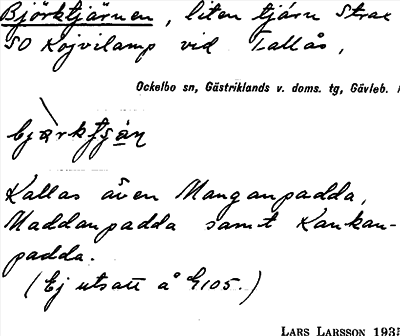 Björktjärnen, liten tjärn strax
SO Kojvilamp vid Tallås,
Ockelbo sn, Gästriklands v. doms. tg, Gävleb.
bjärktjän
Kallas även Manganpadda,
Maddanpadda samt Kankan-
padda.
(Ej utsatt å G105.)
LARS LARSSON 1935